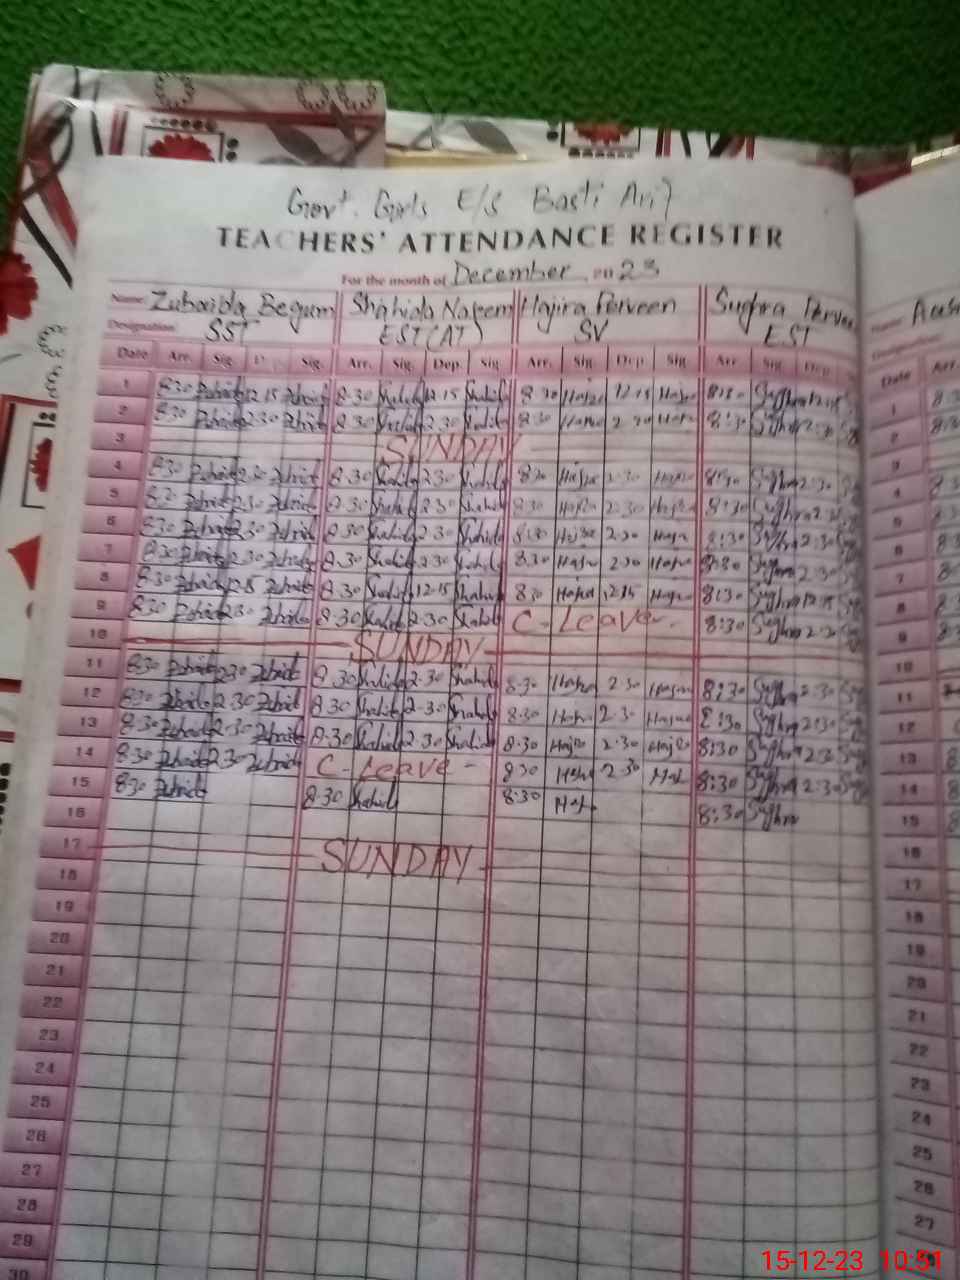 Govt. Girls E/S Basti Arif
TEACHERS' ATTENDANCE REGISTER
For the month of December 2023
Name Zubaida Begum Shahida Naseem Hajira Parveen Sughra Parveen
Designation SST EST(AT) SV EST
Date Arr. Sig. Sig. Arr. Sig. Dep. Sig Arr. Sig. Dep. Sig. Arr Sig. Dep
1 8:30 Zubaida 12.15 Zubaida 8-30 Shahida 12.15 Shahida 8.30 Hajra 12.15 Hajra 8:30 Sughra 12:15
2 8:30 Zubaida 2.30 Zubaida 8.30 Shahida 2.30 Shahida 8.30 Hajra 2.30 Hajra 8:30 Sughra 2:30
3 SUNDAY
4 8:30 Zubaida 2.30 Zubaida 8-30 Shahida 2.30 Shahida 8.30 Hajra 2:30 Hajra 8:30 Sughra 2:30
5 8:30 Zubaida 2.30 Zubaida 8.30 Shahida 2.30 Shahida 8.30 Hajra 2:30 Hajra 8:30 Sughra 2:30
6 8:30 Zubaida 2.30 Zubaida 8.30 Shahida 2.30 Shahida 8.30 Hajra 2.30 Hajra 8:30 Sughra 2:30
7 8:30 Zubaida 2.30 Zubaida 8.30 Shahida 2.30 Shahida 8.30 Hajra 2.30 Hajra 8:30 Sughra 2:30
8 8:30 Zubaida 12.15 Zubaida 8.30 Shahida 12.15 Shahida 8.30 Hajra 12.15 Hajra 8:30 Sughra 12:15
9 8:30 Zubaida 2.30 Zubaida 8.30 Shahida 2.30 Shahida C-Leave- 8:30 Sughra 2:30
10 SUNDAY
11 8:30 Zubaida 2.30 Zubaida 8.30 Shahida 2.30 Shahida 8.30 Hajra 2.30 Hajra 8:30 Sughra 2:30
12 8:30 Zubaida 2.30 Zubaida 8.30 Shahida 2-30 Shahida 8.30 Hajra 2.30 Hajra 8:30 Sughra 2:30
13 8:30 Zubaida 2.30 Zubaida 8-30 Shahida 2.30 Shahida 8-30 Hajra 2:30 Hajra 8:30 Sughra 2:30
14 8:30 Zubaida 2.30 Zubaida C-Leave- 8.30 Hajra 2-30 Hajra 8:30 Sughra 2:30
15 8:30 Zubaida 8.30 Shahida 8:30 Hajra 8:30 Sughra
16
17 SUNDAY
18
19
20
21
22
23
24
25
26
27
28
29
30
Name
Designation
Date Arr.
1
2
3
4
5
6
7
8
9
10
11
12
13
14
15
16
17
18
19
20
21
22
23
24
25
26
27
15-12-23 10:51